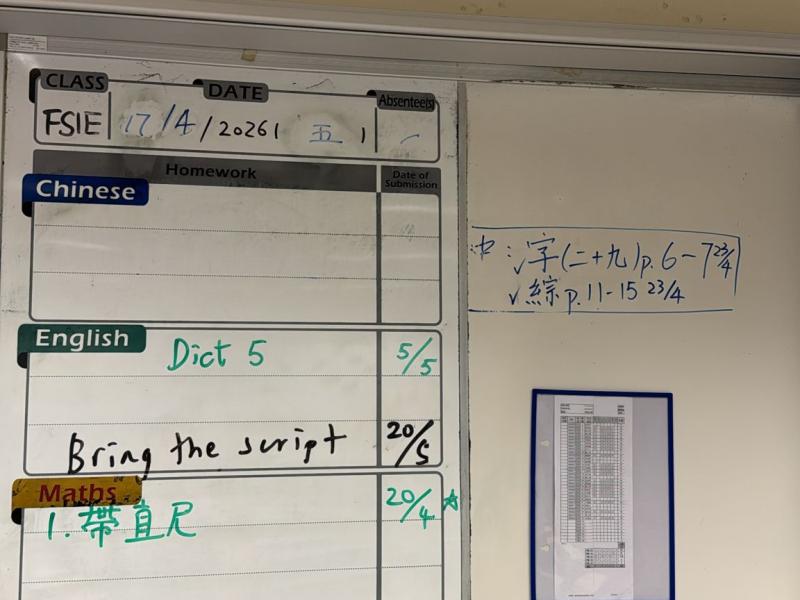 CLASS
DATE
Absentee(s)
FSIE 17/4/2026 ( 五 )
Homework
Date of Submission
Chinese
中：字(二十九)p.6-7 23/4
綜 p.11-15 23/4
English
Dict 5 5/5
Bring the script 20/5
Maths
1. 帶直尺 20/4